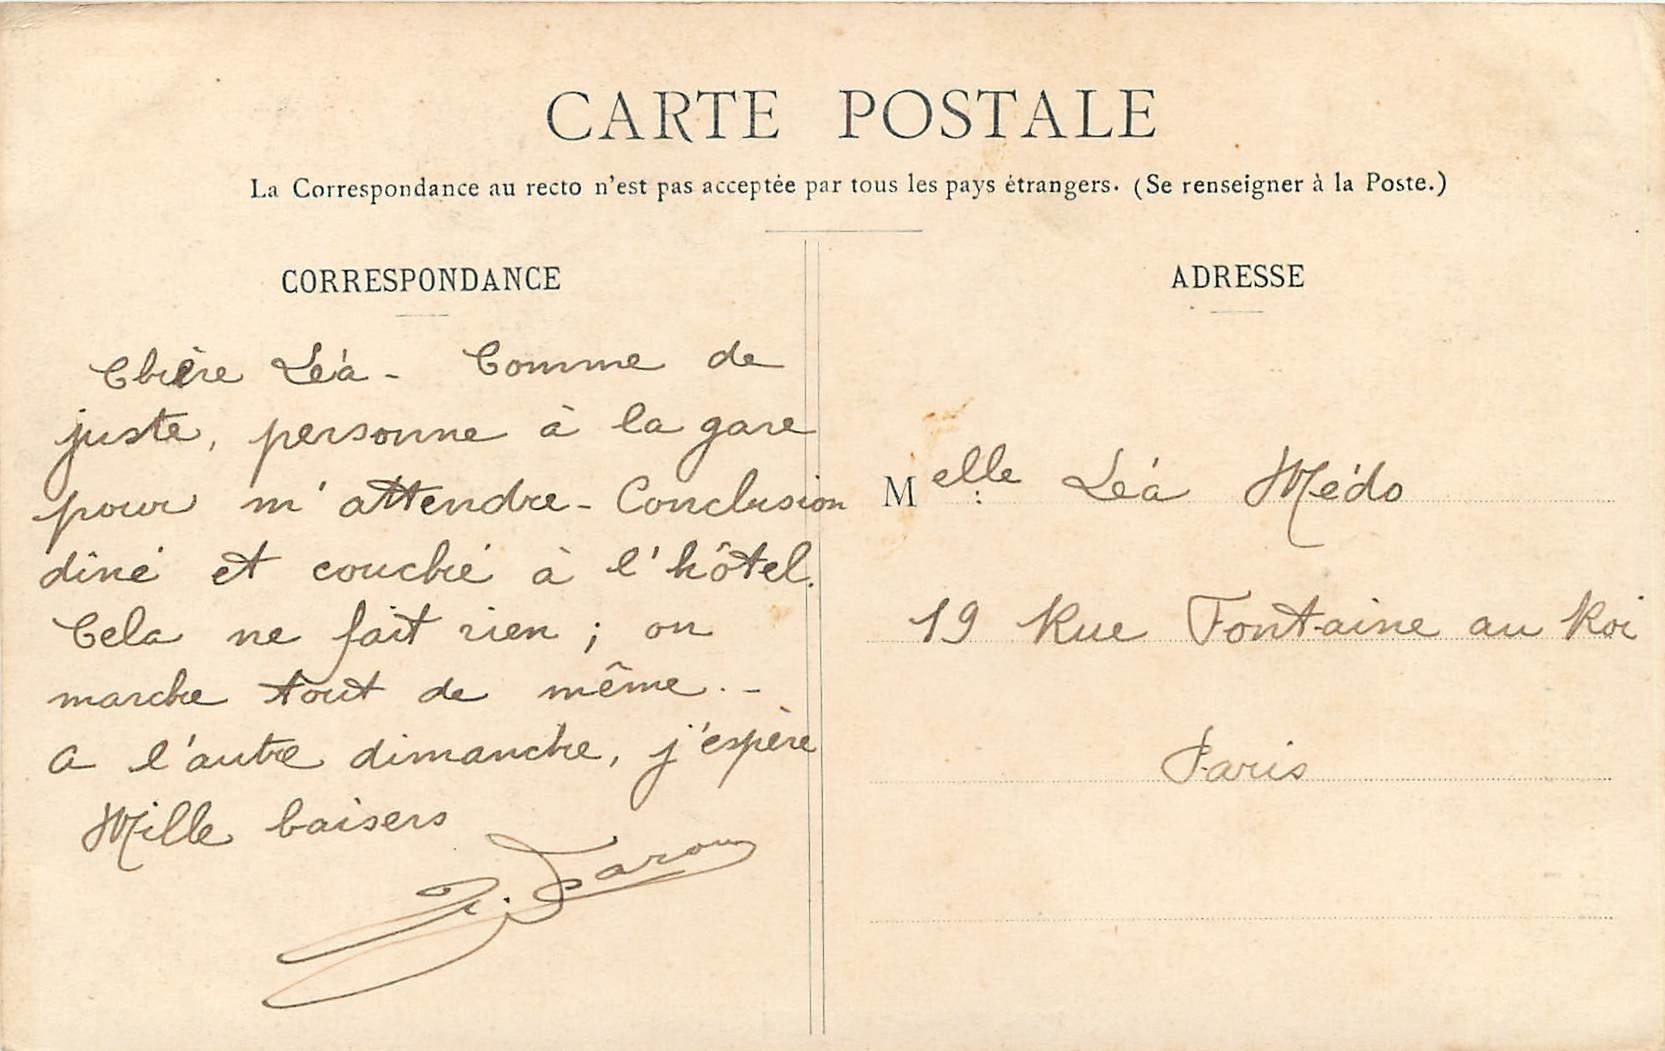 CARTE POSTALE
La Correspondance au recto n'est pas acceptée par tous les pays étrangers. (Se renseigner à la Poste.)
CORRESPONDANCE
Chère Léa - Comme de
juste, personne à la gare
pour m'attendre - Conclusion
dîné et couché à l'hôtel.
Cela ne fait rien ; on
marche tout de même. -
A l'autre dimanche, j'espère
Mille baisers
ADRESSE
Melle Léa Médo
19 Rue Fontaine au Roi
Paris